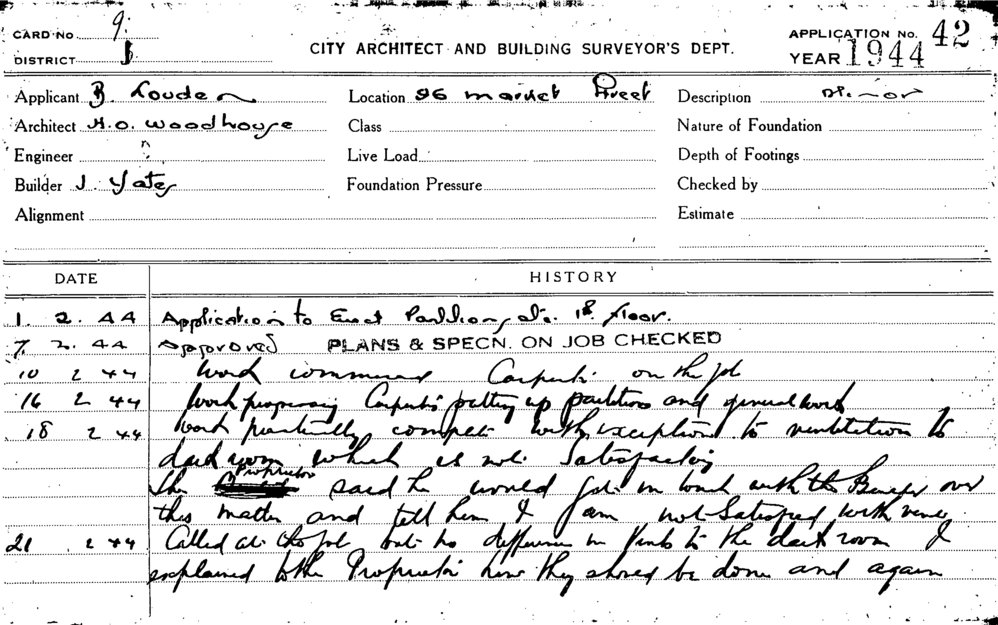 CARD No 9.
DISTRICT
CITY ARCHITECT AND BUILDING SURVEYOR'S DEPT.
APPLICATION No. 42
YEAR 1944
Applicant B. Louden Location 96 market Street Description Minor
Architect H.O. Woodhouse Class Nature of Foundation
Engineer Live Load Depth of Footings
Builder J. Yates Foundation Pressure Checked by
Alignment Estimate
DATE HISTORY
1. 2. 44 Application to Erect Partitions, etc. 1st floor.
7. 2. 44 Approved PLANS & SPECN. ON JOB CHECKED
10 2 44 Work commenced Carpenters on the job
16 2 44 Work progressing Carpenters putting up partitions and general work
18 2 44 Work practically complete with exception to ventilation to
dark room which is not satisfactory
The Proprietor said he would get in touch with the Builder over
this matter and tell him I am not satisfied with
21 2 44 Called at the job but no difference in to the dark room I
explained to the Proprietor how they should be done and again